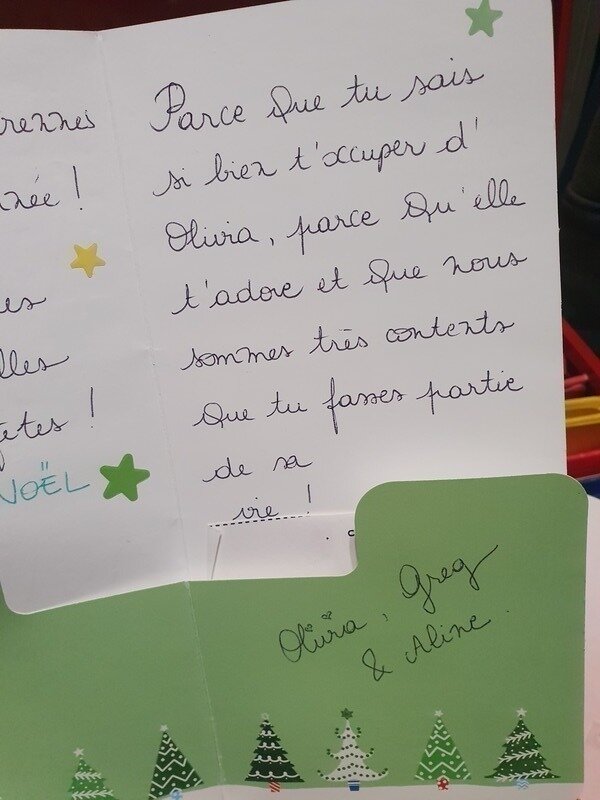 rennes
née !
es
lles
êtes !
NOËL
Parce Que tu sais
si bien t'occuper d'
Olivia, parce Qu'elle
t'adore et Que nous
sommes très contents
Que tu fasses partie
de sa
vie !
Olivia, Greg
& Aline.